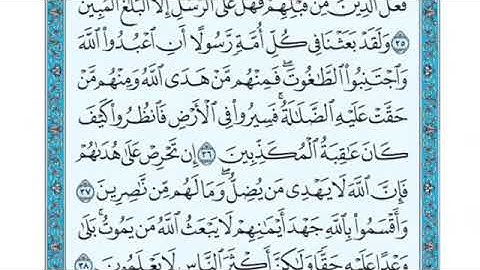 فَعَلَ ٱلَّذِينَ مِن قَبۡلِهِمۡۚ فَهَلۡ عَلَى ٱلرُّسُلِ إِلَّا ٱلۡبَلَٰغُ ٱلۡمُبِينُ
٣٥ وَلَقَدۡ بَعَثۡنَا فِي كُلِّ أُمَّةٖ رَّسُولًا أَنِ ٱعۡبُدُواْ ٱللَّهَ
وَٱجۡتَنِبُواْ ٱلطَّٰغُوتَۖ فَمِنۡهُم مَّنۡ هَدَى ٱللَّهُ وَمِنۡهُم مَّنۡ
حَقَّتۡ عَلَيۡهِ ٱلضَّلَٰلَةُۚ فَسِيرُواْ فِي ٱلۡأَرۡضِ فَٱنظُرُواْ كَيۡفَ
كَانَ عَٰقِبَةُ ٱلۡمُكَذِّبِينَ ٣٦ إِن تَحۡرِصۡ عَلَىٰ هُدَىٰهُمۡ
فَإِنَّ ٱللَّهَ لَا يَهۡدِي مَن يُضِلُّۖ وَمَا لَهُم مِّن نَّٰصِرِينَ ٣٧
وَأَقۡسَمُواْ بِٱللَّهِ جَهۡدَ أَيۡمَٰنِهِمۡ لَا يَبۡعَثُ ٱللَّهُ مَن يَمُوتُۚ بَلَىٰ
وَعۡدًا عَلَيۡهِ حَقّٗا وَلَٰكِنَّ أَكۡثَرَ ٱلنَّاسِ لَا يَعۡلَمُونَ ٣٨